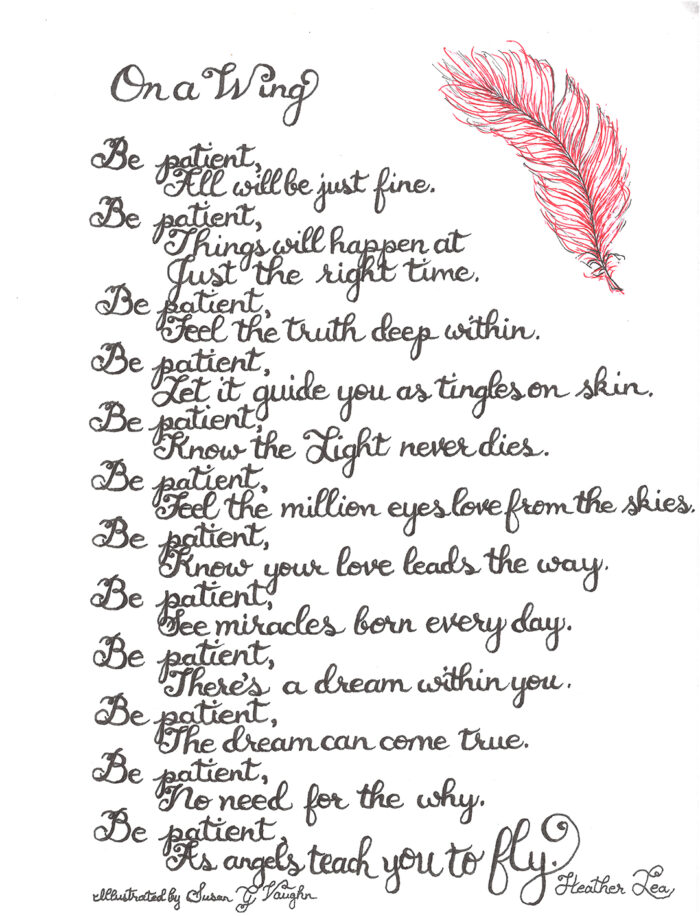 On a Wing
Be patient,
All will be just fine.
Be patient,
Things will happen at
Just the right time.
Be patient,
Feel the truth deep within.
Be patient,
Let it guide you as tingles on skin.
Be patient,
Know the Light never dies.
Be patient,
Feel the million eyes love from the skies.
Be patient,
Know your love leads the way.
Be patient,
See miracles born every day.
Be patient,
There's a dream within you.
Be patient,
The dream can come true.
Be patient,
No need for the why.
Be patient,
As angels teach you to fly.
Illustrated by Susan G Vaughn
Heather Lea